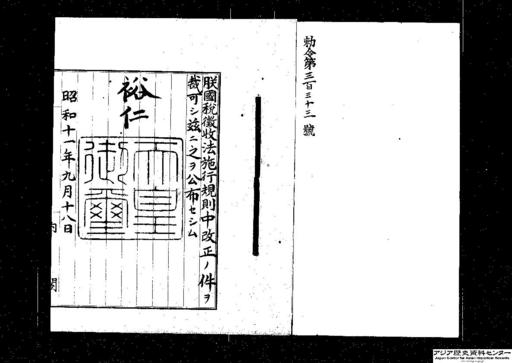 勅令第三百三十三號
朕國稅徵收法施行規則中改正ノ件ヲ
裁可シ茲ニ之ヲ公布セシム
裕仁
天皇御璽
昭和十一年九月十八日
内閣
アジア歴史資料センター
Japan Center for Asian Historical Records